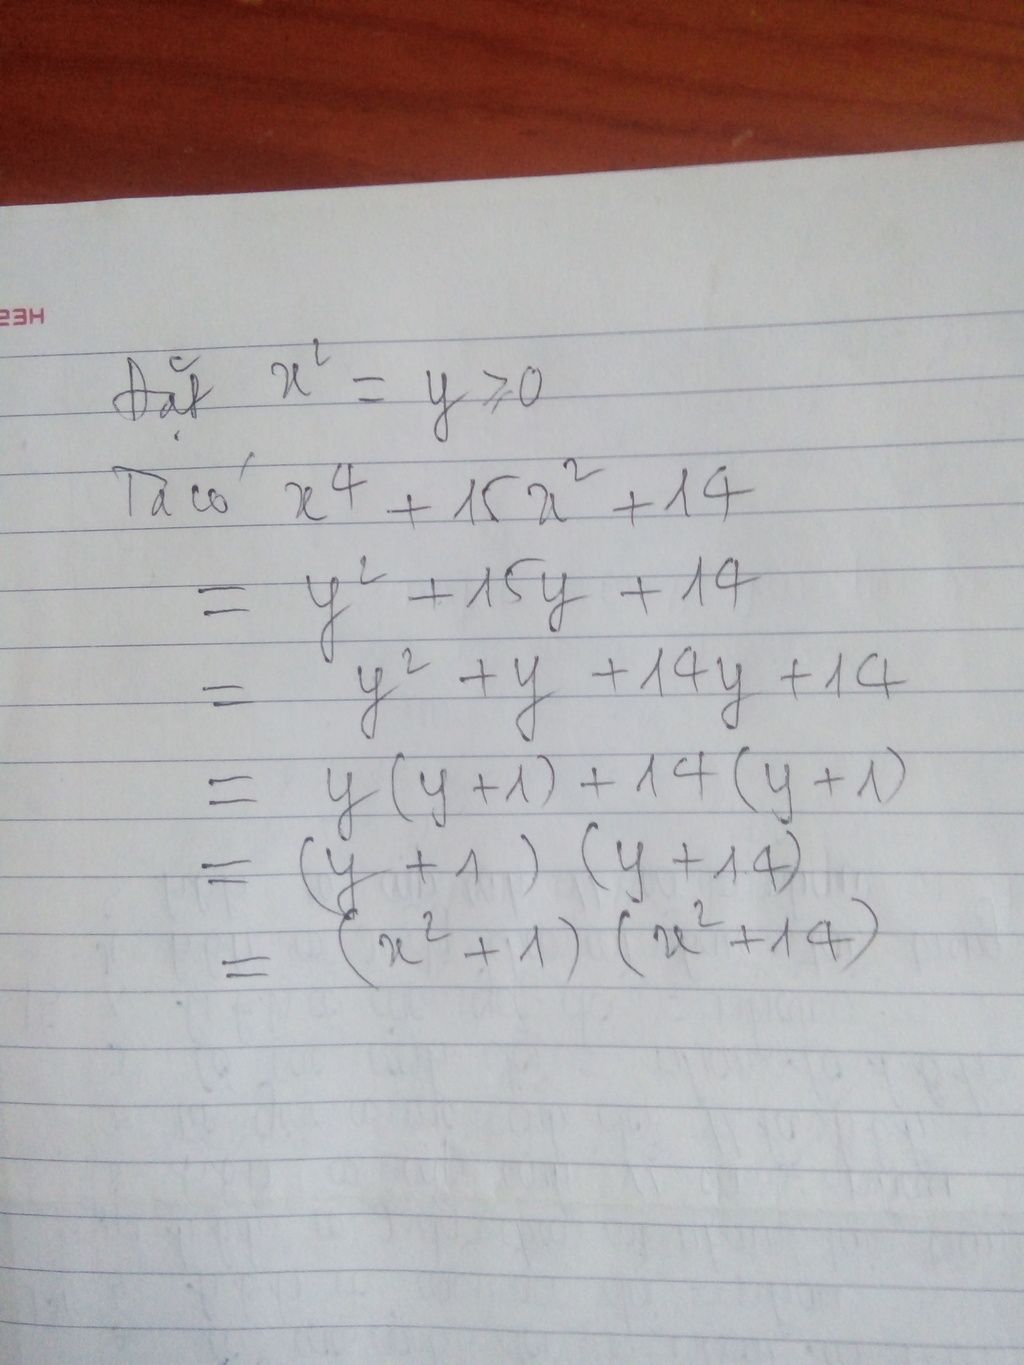 23H
Đặt x² = y ⩾ 0
Ta có x⁴ + 15x² + 14
= y² + 15y + 14
= y² + y + 14y + 14
= y(y+1) + 14(y+1)
= (y+1) (y+14)
= (x²+1) (x²+14)